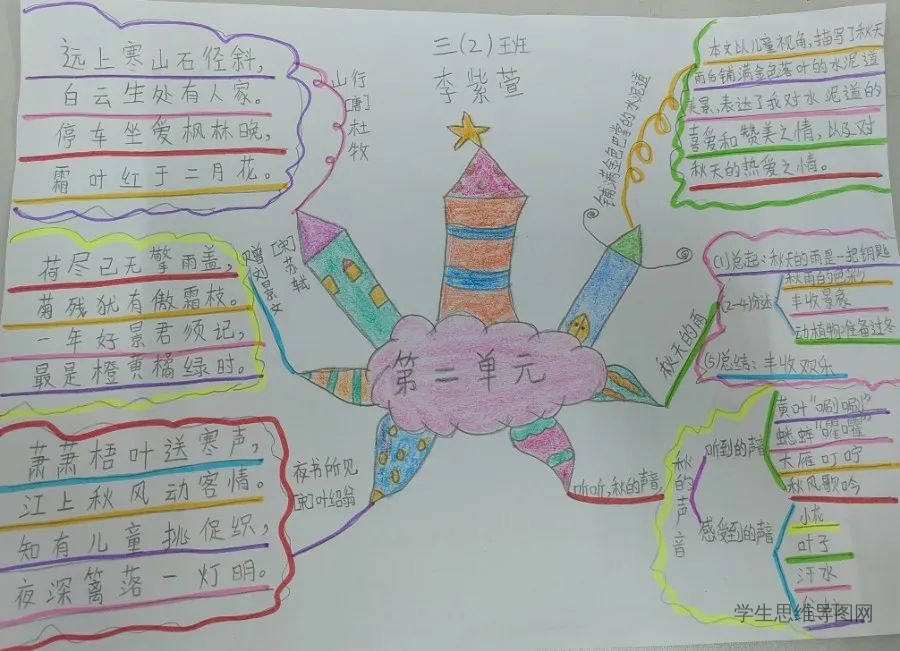 三(2)班
李紫萱
第二单元
山行
[唐]
杜牧
远上寒山石径斜,
白云生处有人家。
停车坐爱枫林晚,
霜叶红于二月花。
赠刘景文
[宋]苏轼
荷尽已无擎雨盖,
菊残犹有傲霜枝。
一年好景君须记,
最是橙黄橘绿时。
夜书所见
[宋]叶绍翁
萧萧梧叶送寒声,
江上秋风动客情。
知有儿童挑促织,
夜深篱落一灯明。
铺满金色巴掌的水泥道
本文以儿童视角,描写了秋天
雨后铺满金色落叶的水泥道
美景,表达了我对水泥道的
喜爱和赞美之情,以及对
秋天的热爱之情。
秋天的雨
(1)总起:秋天的雨是一把钥匙
(2-4)分述
秋雨的色彩
丰收景象
动植物准备过冬
(5)总结:丰收欢乐
听听,秋的声音
秋的声音
听到的声音
黄叶"唰唰"
蟋蟀"㘗㘗"
大雁叮咛
秋风歌吟
感受到的声音
小花
叶子
汗水
学生思维导图网